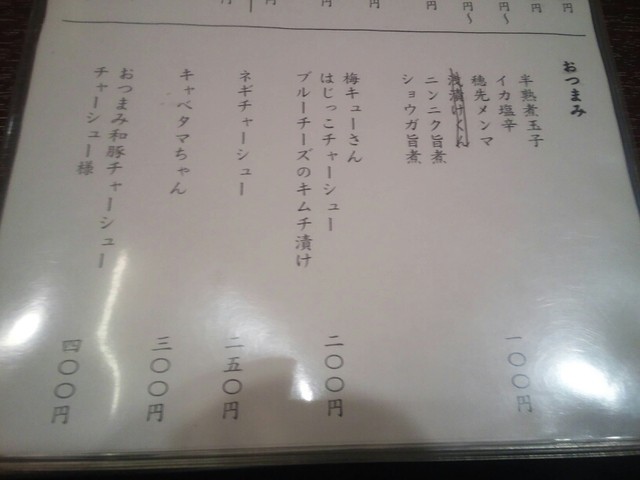 円
円〜
円〜
円
円
円
円
円
おつまみ
半熟煮玉子
イカ塩辛
穂先メンマ
ニンニク旨煮
ショウガ旨煮
一〇〇円
梅キューさん
はじっこチャーシュー
ブルーチーズのキムチ漬け
二〇〇円
ネギチャーシュー
二五〇円
キャベタマちゃん
三〇〇円
おつまみ和豚チャーシュー
チャーシュー様
四〇〇円